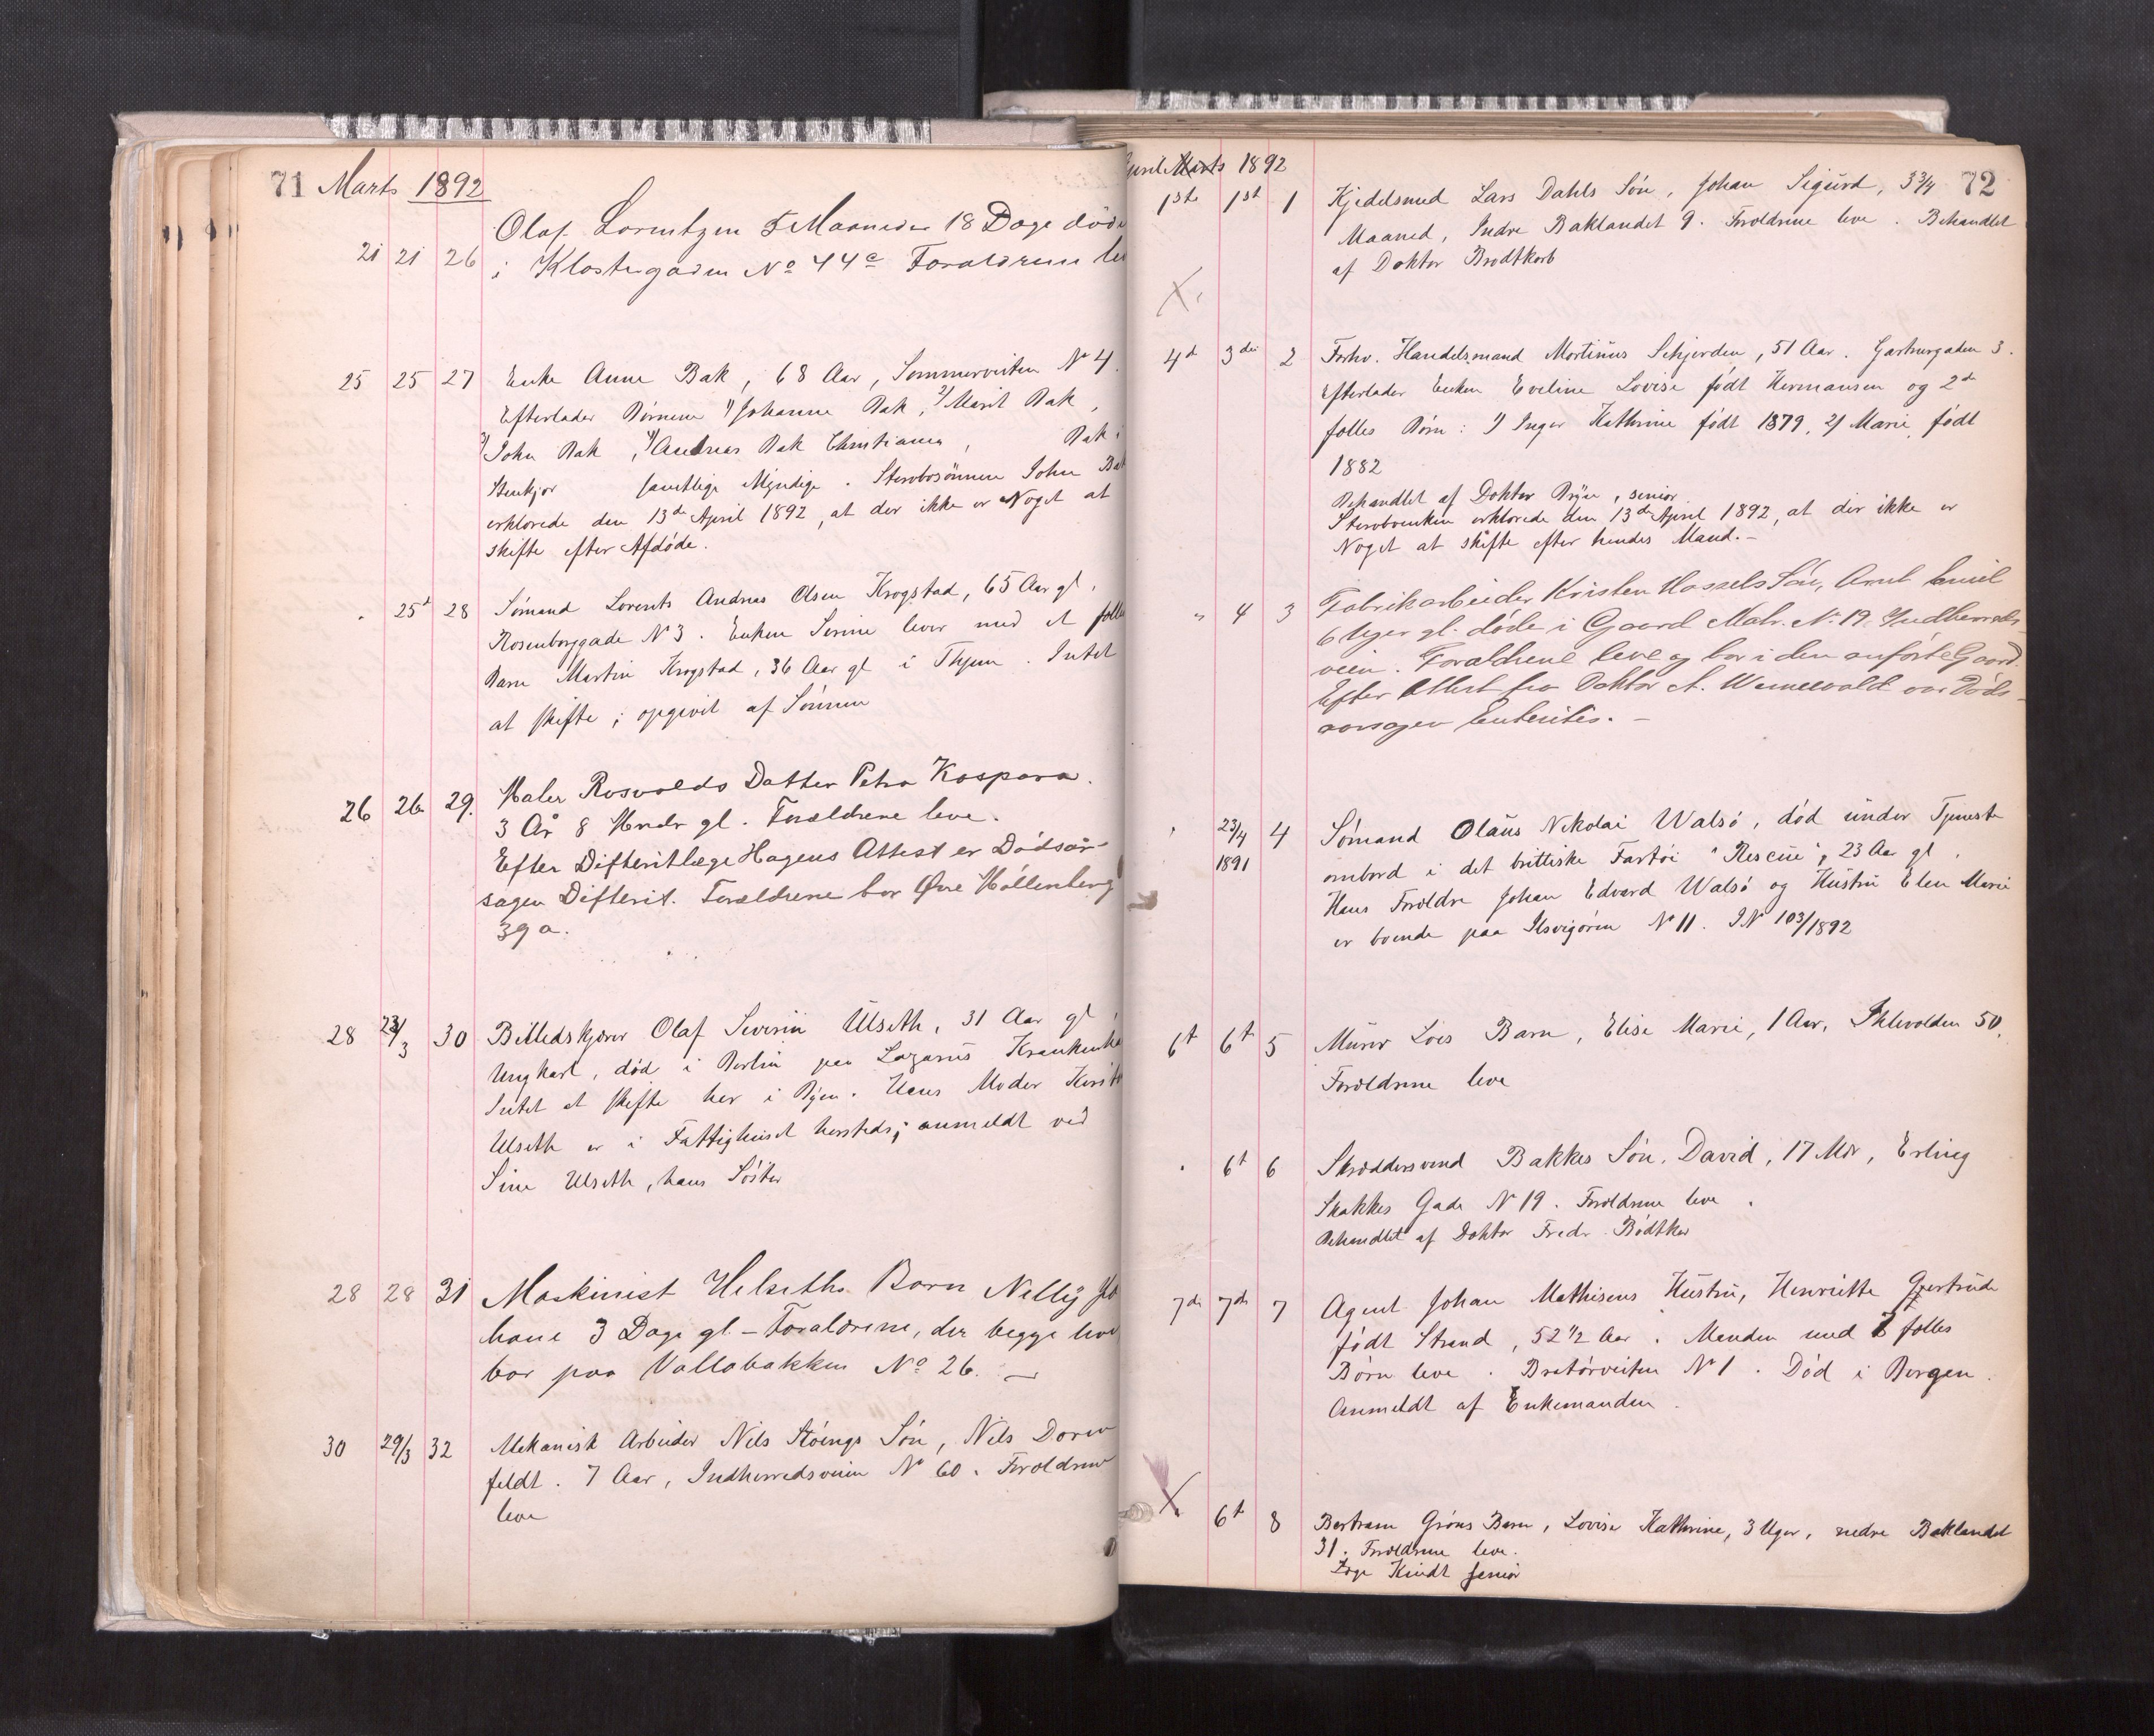 71 Marts 1892
Olaf Lorentzen 5 Maaneder 18 Dage døde
21 21 26 i Klostergaden No 44c Forældrene le
25 25 27 Enke Anne Bak, 68 Aar, Sommerveiten No 4.
Efterlader Børnene 1) Johanne Bak, 2) Marit Bak,
3) John Bak, 4) Andreas Bak Christiania, Bak i
Stenkjær samtlige Myndige. Stervbosønnen John Bak
erklærede den 13de April 1892, at der ikke er Noget at
skifte efter Afdøde.
" 25d 28 Sømand Lorents Andreas Olsen Krogstad, 65 Aar gl.
Rosenborggade No 3. Enken Serine lever med et fælles
Barn Martin Krogstad, 36 Aar gl i Thjem. Intet
at skifte; opgivet af Sønnen
26 26 29. Maler Rosvolds Datter Petra Kaspara.
3 År 8 Mndr gl. Forældrene leve.
Efter Difteritlæge Hagens Attest er Dødsår-
sagen Difterit. Forældrene bor Øvre Møllenberg
39 a.
28 23/3 30 Billedskjærer Olaf Severin Ulseth, 31 Aar gl,
Ungkarl, død i Berlin paa Lazarus Krankenha
Intet at skifte her i Byen. Hans Moder
Ulseth er i Fattighuset hersteds; anmeldt ved
Sine Ulseth, hans Søster
28 28 31 Maskinist Helseths Barn Nelly Jo
hane 3 Dage gl. – Forældrene, der begge leve
bor paa Vollabakken No 26. —
30 29/3 32 Mekanisk Arbeider Nils Støings Søn, Nils Dovre
feldt. 7 Aar, Indherredsveien No 60. Forældrene
leve
April Marts 1892 72
1ste 1st 1 Kjedelsmed Lars Dahls Søn, Johan Sigurd, 3 3/4
Maaned, Indre Baklandet 9. Forældrene leve. Behandlet
af Doktor Brodtkorb
4d 3die 2 Forhv. Handelsmand Mortinus Schjerden, 51 Aar. Gartnergaden 3.
Efterlader Enken Eveline Lovise født Hermansen og 2de
fælles Børn: 1) Inger Kathrine født 1879, 2) Marie, født
1882
Behandlet af Doktor Bryn, senior
Stervboenken erklærede den 13de April 1892, at der ikke er
Noget at skifte efter hendes Mand. –
" 4 3 Fabrikarbeider Kristen Hassels Søn, Arnt Emil
6 Uger gl. døde i Gaard Matr. No 19 Indherreds-
veien. Forældrene leve og bor i den anførte Gaard.
Efter Attest fra Doktor A. Wamevold var Døds-
aarsagen Enteritis. –
" 23/4 1891 4 Sømand Olaus Nikolai Walsø, død under Tjeneste
ombord i det brittiske Fartøi "Rescue", 23 Aar gl.
Hans Forældre Johan Edvard Walsø og Hustru Elen Marie
er boende paa Ilsvigøren No 11. IN 103/1892
6t 6t 5 Murer Lóes Barn, Elise Marie, 1 Aar, Ihlevolden 50.
Forældrene leve
" 6t 6 Skræddersvend Bakkes Søn, David, 17 Mdr, Erling
Skakkes Gade No 19. Forældrene leve.
Behandlet af Doktor Fredr. Bødtker
7de 7de 7 Agent Johan Mathisens Hustru, Henriette Gjertrude
født Strand, 52 1/2 Aar. Manden med fælles
Børn leve. Bratørveiten No 1. Død i Bergen.
Anmeldt af Enkemanden.
6t 8 Bertram Grøns Barn, Lovise Kathrine, 3 Uger, nedre Baklandet
31. Forældrene leve.
Læge Kindt senior